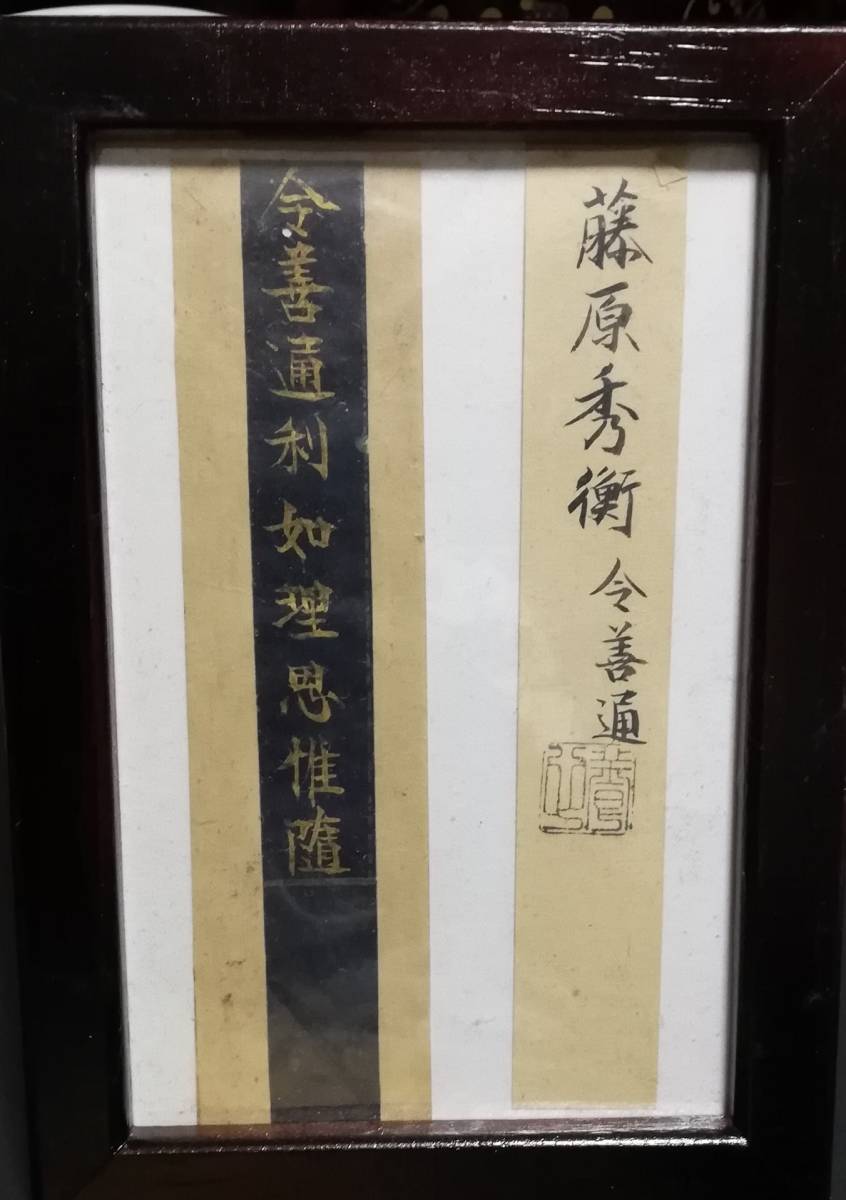 藤原秀衡 令善通
令善通利如理思惟隨